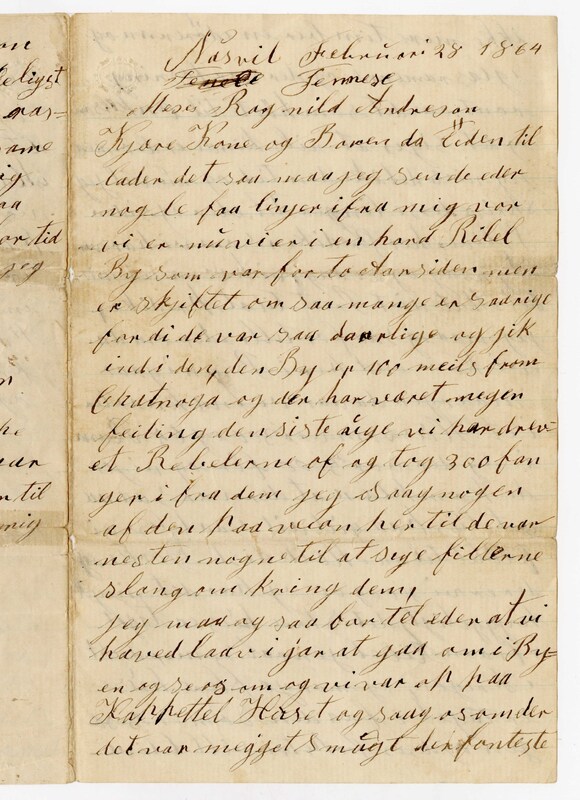 on
eligst
Nasvil Februari 28 1864
Tennese
Mess Ragnild Andreson
Kjære Kone og Barn da Tiden til
lader det saa maa jeg sende eder
nogle faa linjer ifra mig vor
vi er nu vi er i en hard Ribel
By som var for to Aar siden men
er skjiftet om saa mange er saarige
fordi de var saa daarlige og jik
ind i den, den By er 100 meils from
Chatnoga og der har været megen
feiting den siste uge vi har drev-
et Rebelerne of og tog 300 fan
ger ifra dem jeg saag nogen
af dem paa veien her til de var
nesten nogne til at sige fillerne
slang om kring dem,
jeg maa og saa for tel eder at vi
haved laav i gar at gaa om i By-
en og se os om og vi var op paa
Kappettel Huset og saag os om der
det var megget smugt der fonteste
ame
ig
aa
or tid
jeg
ar
n til
mig